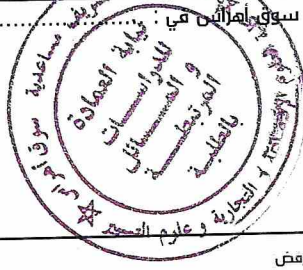 سوق أهراس في : ................
نيابة العمادة
للدراسات
و المسائل
المرتبطة
بالطلبة
مساعدية سوق أهراس
التجارية و علوم التسيير